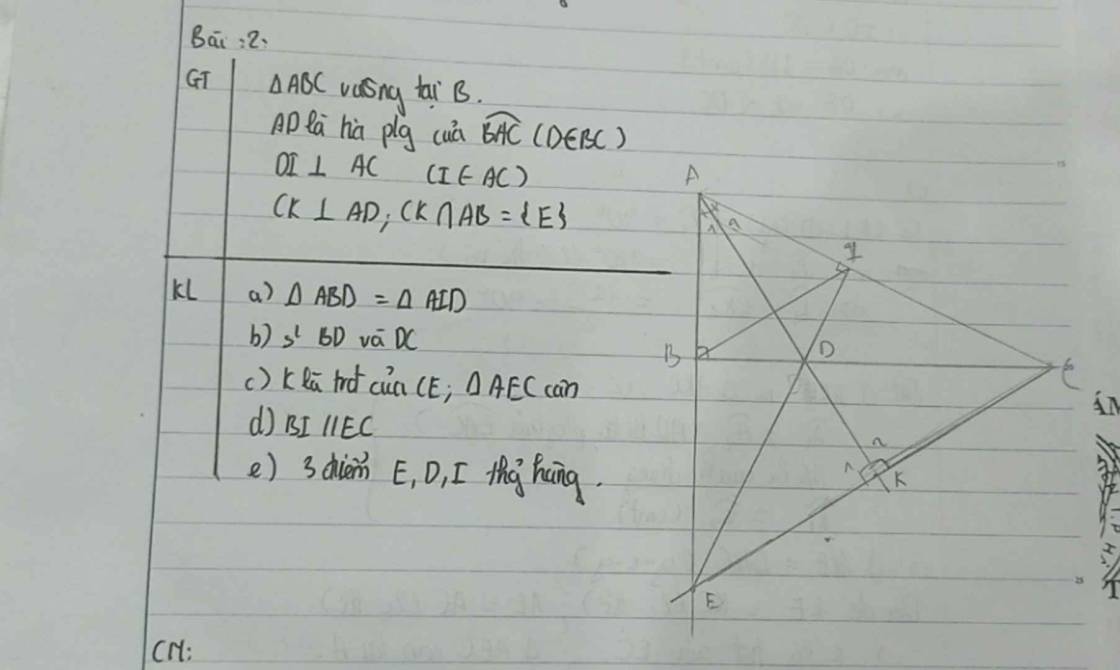 Bài :2:
GT
ΔABC vuông tại B.
AD là hà plg của BAC (D∈BC)
DI ⊥ AC (I ∈ AC)
CK ⊥ AD; CK ∩ AB = {E}
KL
a) Δ ABD = Δ AID
b) s² BD và DC
c) K là trđ của CE; Δ AEC cân
d) BI // EC
e) 3 điểm E, D, I thẳg hàng.
A
1 2
I
B
D
C
1 2
K
E
CM: